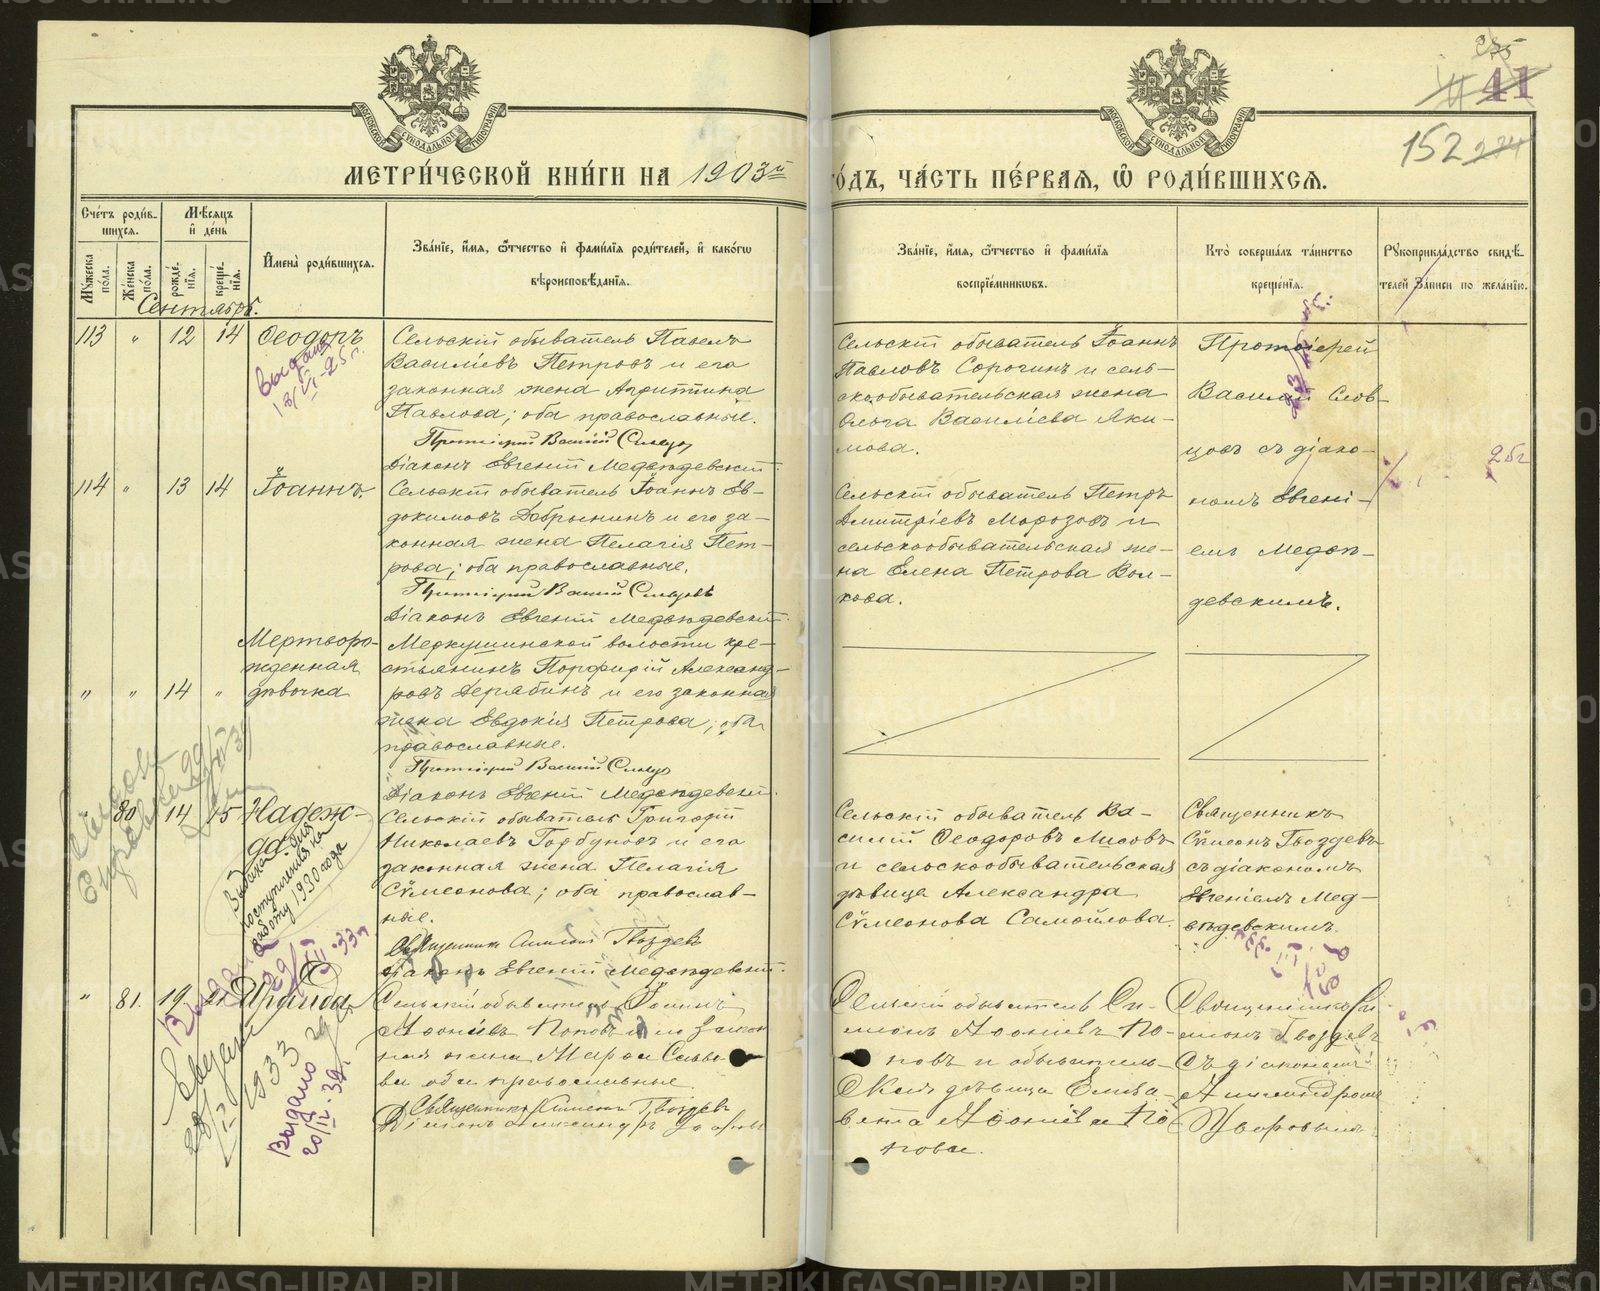 МЕТРИ́ЧЕСКОЙ КНИ́ГИ НА 1903й
ГО́ДЪ, ЧА́СТЬ ПЕ́РВАЯ, Ѡ РОДИ́ВШИХСЯ.
41
152
Сче́тъ роди́в-
шихся.
Мѣсяцъ
и день
Имена̀ роди́вшихся.
Зва́нїе, и́мя, ѻ́тчество и фами́лїя роди́телей, и како́гѡ
вѣроисповѣ́данїя.
Му́жеска
по́ла.
Же́нска
по́ла.
рожде́-
нїя.
креще́-
нїя.
Зва́нїе, и́мя, ѻ́тчество и фами́лїя
воспрїе́мникѡвъ.
Кто̀ соверша́лъ та́инство
креще́нїя.
Рукоприкла́дство свидѣ́-
телей за́писи по жела́нїю.
Сентябрь.
113 " 12 14 Ѳеодоръ
Сельскій обыватель Павелъ
Василіевъ Петровъ и его
законная жена Агриппина
Павлова; оба православные.
Протоіерей Василій Словцовъ
Діаконъ Евгеній Медвѣдевскій
Сельскій обыватель Іоаннъ
Павловъ Сорогинъ и сель-
скообывательская жена
Ольга Василіева Яки-
мова.
Протоіерей
Василій Слов-
цовъ съ діако-
номъ Евгені-
емъ Медвѣ-
девскимъ.
Выдана
114 " 13 14 Іоаннъ
Сельскій обыватель Іоаннъ Ев-
докимовъ Добрынинъ и его за-
конная жена Пелагія Пет-
рова; оба православные.
Протоіерей Василій Словцовъ
Діаконъ Евгеній Медвѣдевскій.
Сельскій обыватель Петръ
Димитріевъ Морозовъ и
сельскообывательская же-
на Елена Петрова Вол-
кова.
25г
Мертворо-
жденная
" " 14 " дѣвочка
Меркушинской волости кре-
стьянинъ Порфирій Александ-
ровъ Дерябинъ и его законная
жена Евдокія Петрова; оба
православные.
Протоіерей Василій Словцовъ
Діаконъ Евгеній Медвѣдевскій.
80 14 15 Надеж-
да
Сельскій обыватель Григорій
Николаевъ Горбуновъ и его
законная жена Пелагія
Сѵмеонова; оба православ-
ные.
Священникъ Симеонъ Гвоздевъ
Діаконъ Евгеній Медвѣдевскій.
Сельскій обыватель Ва-
силій Ѳеодоровъ Лисовъ
и сельскообывательская
дѣвица Александра
Сѵмеонова Самойлова.
Священникъ
Сѵмеонъ Гвоздевъ
съ діакономъ
Евгеніемъ Мед-
вѣдевскимъ.
для
поступления на
работу 1930 года
" 81. 19 21 Ираида
Сельскій обыватель Іоаннъ
Аѳоніевъ Поповъ и его закон
ная жена Марѳа Савво
ва оба православные
Священникъ Симеонъ Гвоздевъ
Діаконъ Александръ Уваровъ
Сельскій обыватель Си-
меонъ Аѳоніевъ По-
повъ и обыватель-
ская дѣвица Елиза-
вета Аѳоніева По-
пова.
Священникъ Си
меонъ Гвоздевъ
съ діакономъ
Александромъ
Уваровымъ
Выдана
1933
Выдано
20/II-39.
METRIKI.GASO-URAL.RU